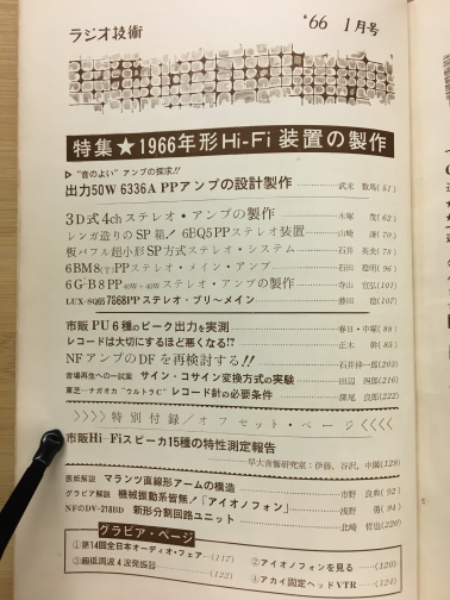 ラジオ技術
'66 1月号
特集★1966年形Hi-Fi装置の製作
▷“音のよい”アンプの探求!!
出力50W 6336A PPアンプの設計製作……武末 数馬(51)
3D式4chステレオ・アンプの製作……木塚 茂(62)
レンガ造りのSP箱! 6BQ5PPステレオ装置……山崎 謙(70)
板バフル超小形SP方式ステレオ・システム……石井 英夫(78)
6BM8(T)PPステレオ・メイン・アンプ……石田 聡明(96)
6G-B8 PP40W+40Wステレオ・アンプの製作……寺山 宣弘(101)
LUX-SQ65 7868PPステレオ・プリ〜メイン……藤田 稔(107)
市販PU6種のピーク出力を実測……春日・中塚(88)
レコードは大切にするほど悪くなる!?……正木 幹(85)
NFアンプのDFを再検討する!!……石井伸一郎(202)
音場再生への一試案 サイン・コサイン変換方式の実験……田辺 四郎(216)
東芝—ナガオカ“ウルトラC” レコード針の必要条件……深尾 良郎(222)
>>>>特別付録/オフセット・ページ<<<<
市販Hi-Fiスピーカ15種の特性測定報告
—早大音響研究室:伊藤,谷沢,中園(129)
図紙解説 マランツ直線形アームの構造……市野 良典(92)
グラビア解説 機械振動系皆無!「アイオノフォン」……浅野 勇(94)
NFのDV-218BD 新形分割回路ユニット……北崎 哲也(220)
グラビア・ページ
①第14回全日本オーディオ・フェア…(117)
②アイオノフォンを見る……(120)
③超低周波4波発振器……(122)
④アカイ固定ヘッドVTR……(124)